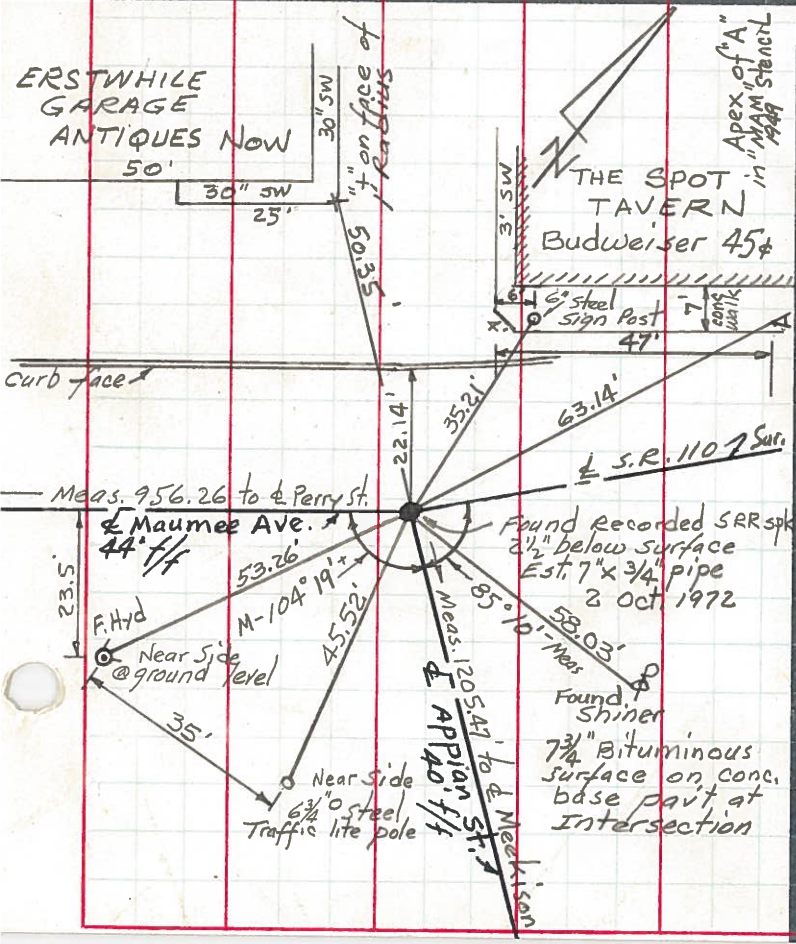 ERSTWHILE
GARAGE
ANTIQUES NOW
50'
30" SW
25'
30" SW
"+" on face of
1' Radius
50.35'
3' SW
Apex of "A"
in "MAM" stencil
1949
N
THE SPOT
TAVERN
Budweiser 45¢
6'
6" Steel
Sign Post
7'
conc
walk
A
47'
curb face
22.14'
35.21'
63.14'
℄ S.R. 110 Sur.
Meas. 956.26 to ℄ Perry St.
℄ Maumee Ave.
44' f/f
Found Recorded SRR spk
2½" below surface
Est. 7" x ¾" pipe
2 Oct. 1972
23.5'
53.26'
M-104° 19'±
45.52'
85° 10'-Meas
58.03'
F. Hyd
Near Side
@ ground level
35'
Near Side
6¾" O Steel
Traffic lite pole
Meas. 1205.47' to ℄ Meekison
℄ Appian St.
40' f/f
Found
Shiner
7¾" Bituminous
surface on conc.
base pav't at
Intersection